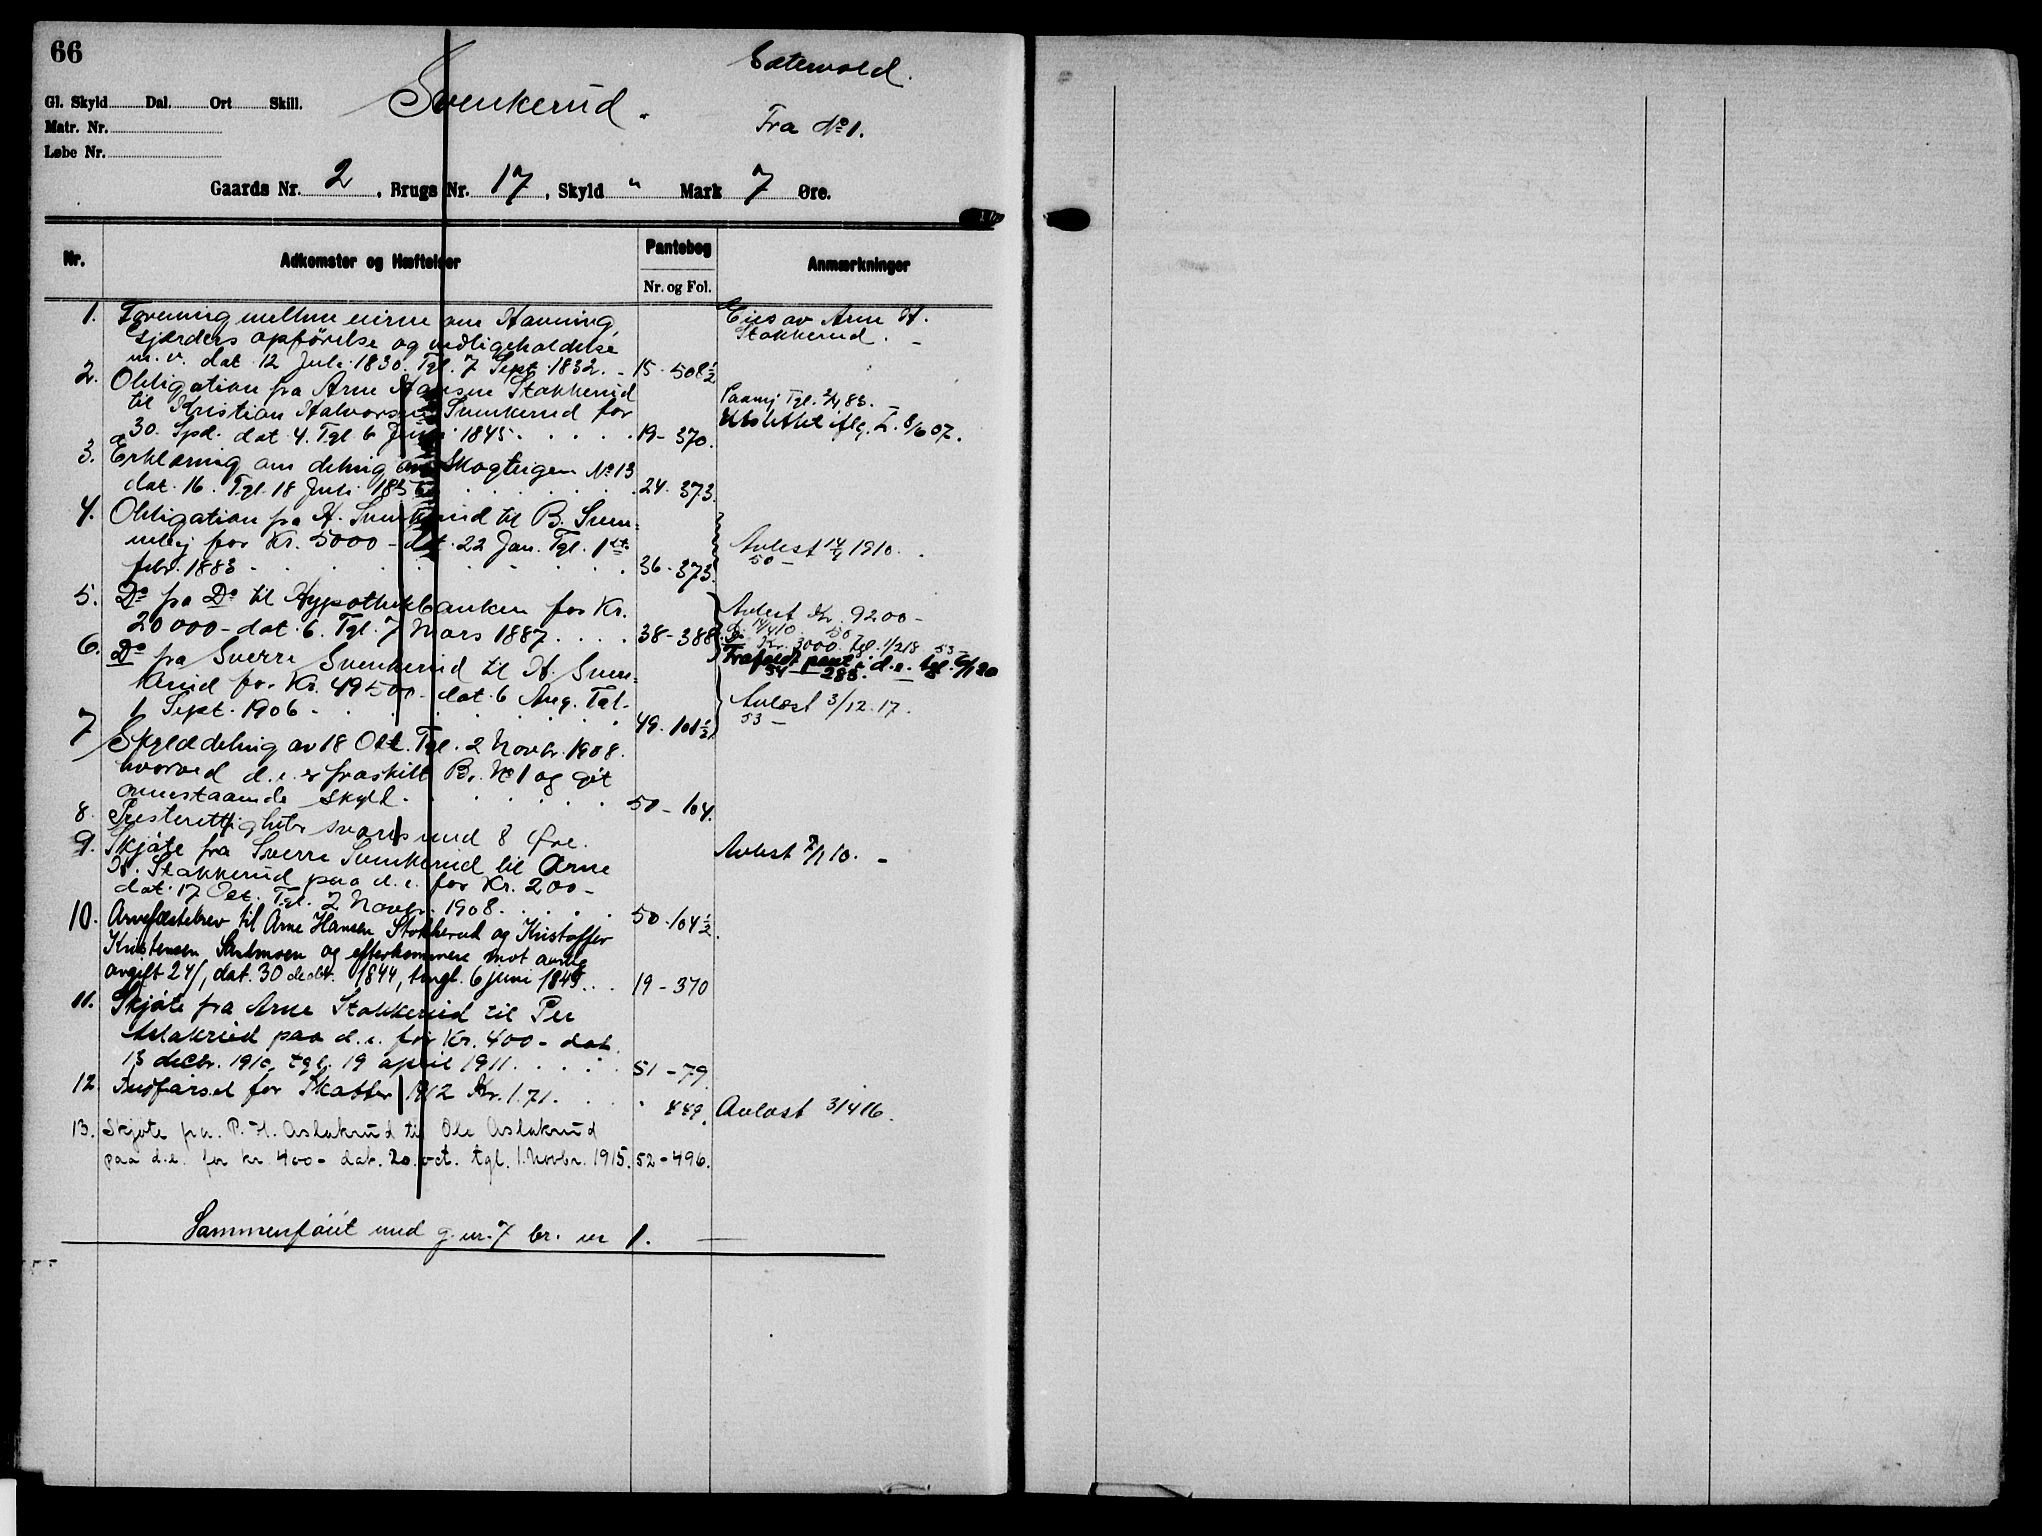 66
Sætervold.
Gl. Skyld Dal. Ort Skill.
Svenkerud.
Matr. Nr.
Fra No 1.
Løbe Nr.
Gaards Nr. 2, Brugs Nr. 17, Skyld " Mark 7 Øre.
Nr.
Adkomster og Hæftelser
Pantebog
Nr. og Fol.
Anmærkninger
1. Forening mellem eierne om Havning,
Gjærders opførelse og vedligeholdelse
m. v. dat 12 Juli 1830. Tgl. 7 Sept. 1832. - 15-508½
Eies av Arne H.
Stokkerud. -
2. Obligation fra Arne Hansen Stokkerud
til Kristian Halvorsen Svenkerud for
30. Spd. dat. 4. Tgl 6 Juni 1845. . . . . 19-370.
Utslettet iflg. L. 8/6 07.
3. Erklæring om deling av Skogteigen No 13
dat. 16. Tgl. 18 Juli 24-373.
4. Obligation fra H. Svenkerud til B. Sven=
for Kr. 5000 - dat. 22 Jan. Tgl. 1ste
febr. 1883 . . . . . . . 36-373.
Avlest 14/4 1910.
50 -
5. Do fra Do til Hypothekbanken for Kr.
20000 - dat. 6. Tgl. 7 Mars 1887. . . . 38-388
Avlest Kr. 9200 -
d. 14/4 10. 50
Do Kr. 3000. tgl. 1/2 18 53 -
Frafaldt pant i d.e. tgl. 6/1 20
54 - 283.
6. Do fra Sverre Svenkerud til H. Sven=
kerud for Kr. 49500 - dat. 6 Aug. Tgl.
1 Sept. 1906 . . . . . . 49-101½
Avlæst 3/12. 17.
53 -
7 Skylddeling av 18 Okt. Tgl. 2 Novbr. 1908.
hvorved d. e. er fraskilt Br. No 1 og git
ovenstaaende skyld. . . . . . 50-104.
8. Presterettigheter svares med 8 Øre.
9. Skjøte fra Sverre Svenkerud til Arne
H. Stokkerud paa d. e. for Kr. 200 -
dat. 17 Oct. Tgl. 2 Novbr. 1908. . . . . 50-104½
10. Arvefæstebrev til Arne Hansen Stokkerud og Kristoffer
Kristensen og efterkommere mot aarlig
avgift 24 /, dat. 30 decbr. 1844, tingl. 6 Juni 1845. . . 19-370
11. Skjøte fra Arne Stokkerud til Per
Aslakrud paa d. e. for Kr. 400 - dat.
13 decbr. 1910, tgl. 19 april 1911. . . . . 51-79.
12. Kr. 1.71. . . " 449.
Avlæst 3/4 16.
13. Skjøte fra P. H. Aslakrud til Ole Aslakrud
paa d.e. for kr. 400 - dat. 20. oct. tgl. 1. Novbr. 1915. 52-496.
Sammenføiet med g. nr. 7 br. nr 1.